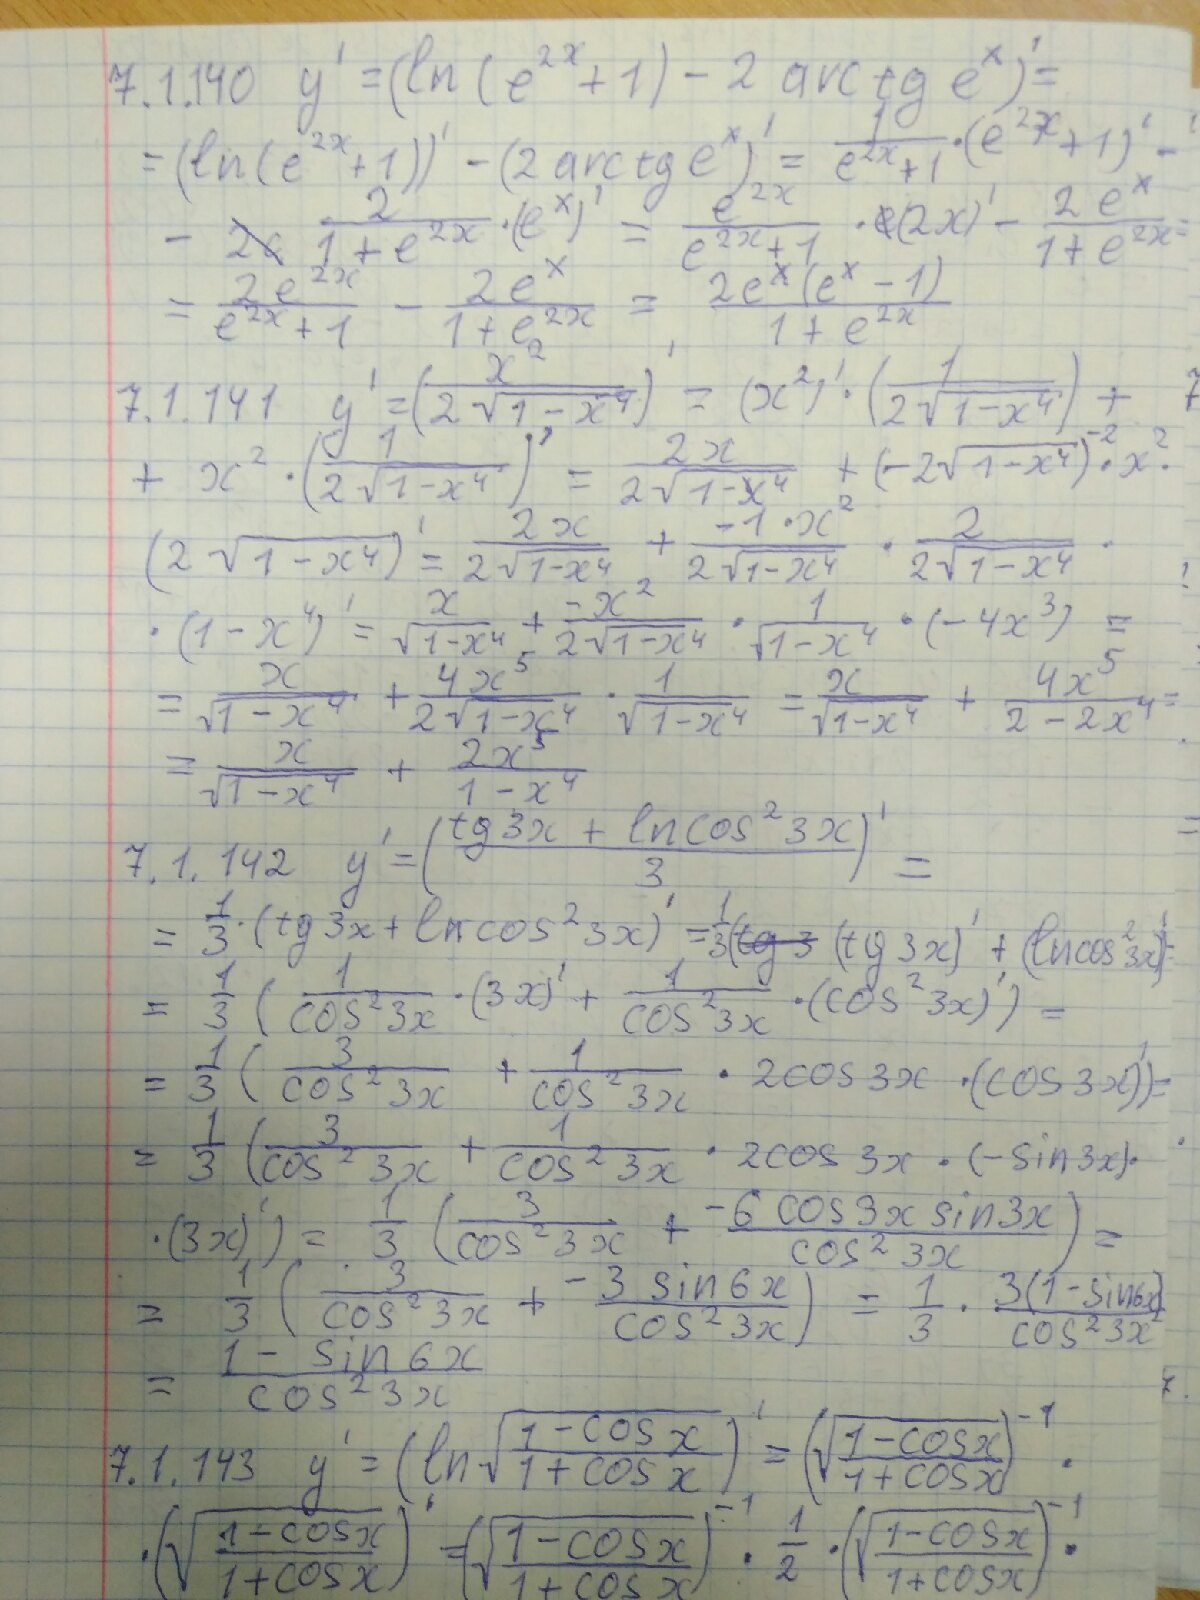 7.1.140 y' = (ln(e^{2x}+1) - 2 arctg e^x)' =
= (ln(e^{2x}+1))' - (2 arctg e^x)' = \frac{1}{e^{2x}+1} · (e^{2x}+1)' -
- \frac{2}{1+e^{2x}} · (e^x)' = \frac{e^{2x}}{e^{2x}+1} · (2x)' - \frac{2e^x}{1+e^{2x}} =
= \frac{2e^{2x}}{e^{2x}+1} - \frac{2e^x}{1+e^{2x}} = \frac{2e^x(e^x-1)}{1+e^{2x}}
7.1.141 y' = (\frac{x^2}{2\sqrt{1-x^4}})' = (x^2)' · (\frac{1}{2\sqrt{1-x^4}}) +
+ x^2 · (\frac{1}{2\sqrt{1-x^4}})' = \frac{2x}{2\sqrt{1-x^4}} + (-2\sqrt{1-x^4})^{-2} · x^2 ·
(2\sqrt{1-x^4})' = \frac{2x}{2\sqrt{1-x^4}} + \frac{-1·x^2}{2\sqrt{1-x^4}} · \frac{2}{2\sqrt{1-x^4}} ·
· (1-x^4)' = \frac{x}{\sqrt{1-x^4}} + \frac{-x^2}{2\sqrt{1-x^4}} · \frac{1}{\sqrt{1-x^4}} · (-4x^3) =
= \frac{x}{\sqrt{1-x^4}} + \frac{4x^5}{2\sqrt{1-x^4}} · \frac{1}{\sqrt{1-x^4}} = \frac{x}{\sqrt{1-x^4}} + \frac{4x^5}{2-2x^4} =
= \frac{x}{\sqrt{1-x^4}} + \frac{2x^5}{1-x^4}
7.1.142 y' = (\frac{tg 3x + ln cos^2 3x}{3})' =
= \frac{1}{3} · (tg 3x + ln cos^2 3x)' = \frac{1}{3}((tg 3x)' + (ln cos^2 3x)' =
= \frac{1}{3} (\frac{1}{cos^2 3x} · (3x)' + \frac{1}{cos^2 3x} · (cos^2 3x)') =
= \frac{1}{3} (\frac{3}{cos^2 3x} + \frac{1}{cos^2 3x} · 2cos 3x · (cos 3x)') =
= \frac{1}{3} (\frac{3}{cos^2 3x} + \frac{1}{cos^2 3x} · 2cos 3x · (-sin 3x) ·
· (3x)') = \frac{1}{3} (\frac{3}{cos^2 3x} + \frac{-6 cos 3x sin 3x}{cos^2 3x}) =
= \frac{1}{3} (\frac{3}{cos^2 3x} + \frac{-3 sin 6x}{cos^2 3x}) = \frac{1}{3} · \frac{3(1-sin 6x)}{cos^2 3x} =
= \frac{1 - sin 6x}{cos^2 3x}
7.1.143 y' = (ln \sqrt{\frac{1-cos x}{1+cos x}})' = (\sqrt{\frac{1-cos x}{1+cos x}})^{-1} ·
· (\sqrt{\frac{1-cos x}{1+cos x}})' = (\sqrt{\frac{1-cos x}{1+cos x}})^{-1} · \frac{1}{2} · (\sqrt{\frac{1-cos x}{1+cos x}})^{-1} ·